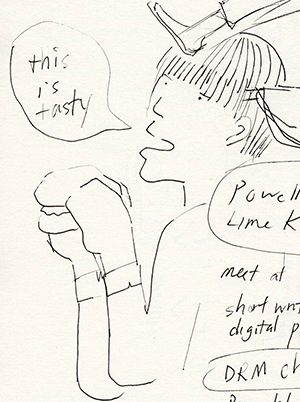 this
is
tasty
Powell
Lime K
meet at
short wri
digital p
DRM ch